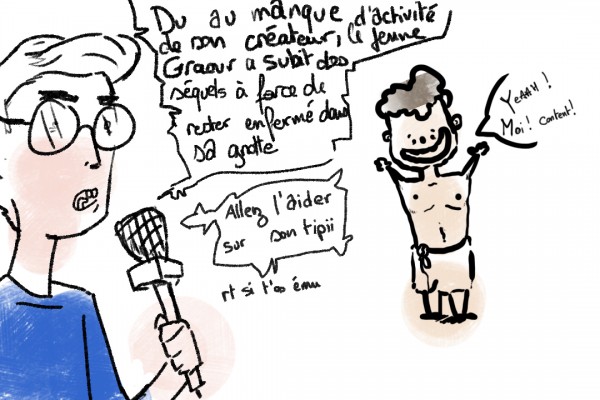 Du au manque d'activité
de son créateur, le jeune
Graour a subit des
séquels à force de
rester enfermé dans
sa grotte
Allez l'aider
sur son tipii
rt si t'es ému
YEAHH !
Moi! content!